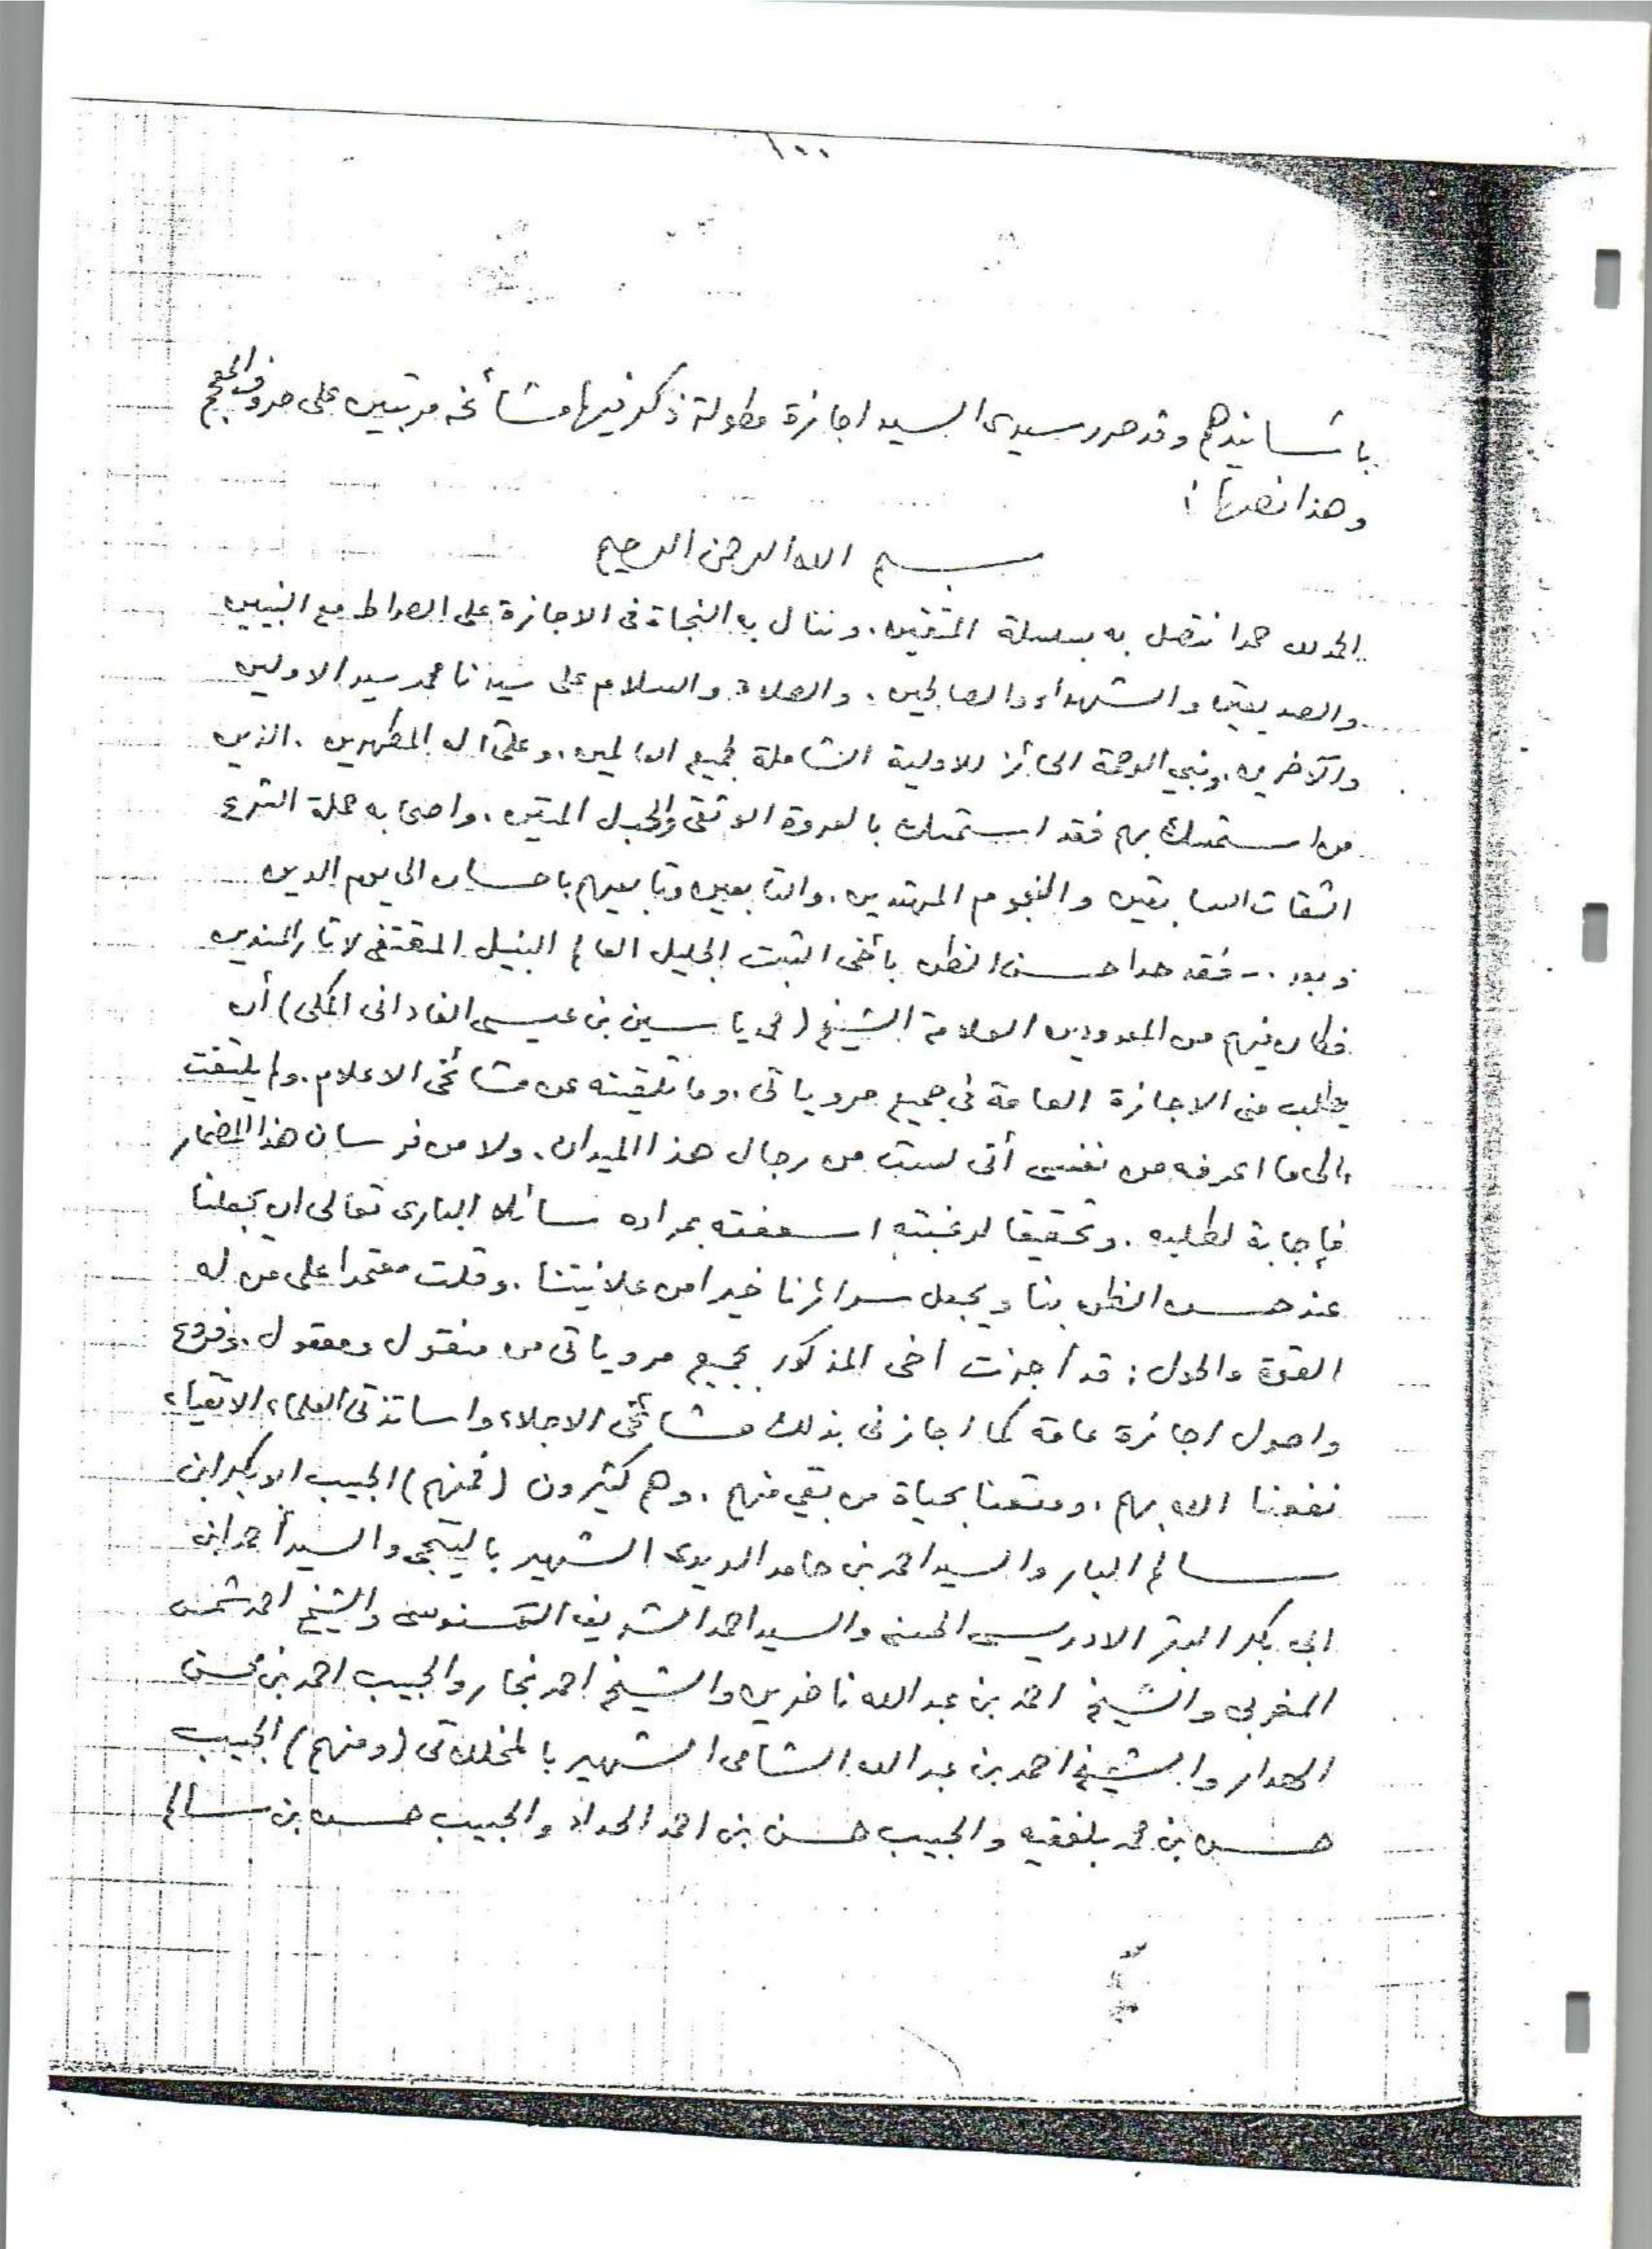 ١٠٠
باسانيدهم وقد حرر سيدى السيد اجازة مطولة ذكر فيها مشائخه مرتبين على حروف المعجم
وهذا نصها :
بسم الله الرحمن الرحيم
الحمد لله حمدا نتصل به بسلسلة المتقين . وننال به النجاة فى الاجازة على الصراط مع النبيين
والصديقين والشهداء والصالحين . والصلاة والسلام على سيدنا محمد سيد الاولين
والآخرين . ونبي الرحمة الحائز للاولية الشاملة لجميع العالمين . وعلى آله المطهرين . الذين
من استمسك بهم فقد استمسك بالعروة الوثقى والحبل المتين . واصحابه حملة الشرع
الثقات السابقين والنجوم المهتدين . والتابعين وتابعيهم باحسان الى يوم الدين
وبعد .- فقد حدا حسن الظن بأخى الثبت الجليل العالم النبيل المقتفى لاثار المسندين
فكان منهم من المعدودين العلامة الشيخ (محمد ياسين بن عيسى الفادانى المكى) أن
يطلب منى الاجازة العامة فى جميع مروياتى . وما تلقيته عن مشائخى الاعلام . ولم يلتفت
الى ما اعرفه من نفسى أنى لست من رجال هذا الميدان . ولا من فرسان هذا المضمار
فإجابة لطلبه . وتحقيقا لرغبته اسعفته بمراده سائلا البارى تعالى ان يجعلنا
عند حسن الظن بنا ويجعل سرائرنا خيرا من علانيتنا . وقلت معتمدا على من له
القوة والحول : قد أجزت أخى المذكور بجميع مروياتى من منقول ومعقول . وفروع
واصول اجازة عامة كما اجازنى بذلك مشائخى الاجلاء واساتذتى العلماء الاتقياء
نفعنا الله بهم . ومتعنا بحياة من بقي منهم . وهم كثيرون (فمنهم) الحبيب ابو بكر ابن
سالم البار والسيد احمد بن حامد الديدى الشهير بالتيجى والسيد أحمد ابن
ابى بكر الادريسى الحسنى والسيد احمد الشريف السنوسى والشيخ احمد شمس
المغربى والشيخ احمد بن عبد الله ناضرين والشيخ احمد نجار والحبيب احمد بن محسن
الهدار والشيخ احمد بن عبد الله الشامى الشهير بالمخللاتى (ومنهم) الحبيب
حسن بن محمد بلفقيه والحبيب حسن بن احمد الحداد والحبيب حسن بن سالم